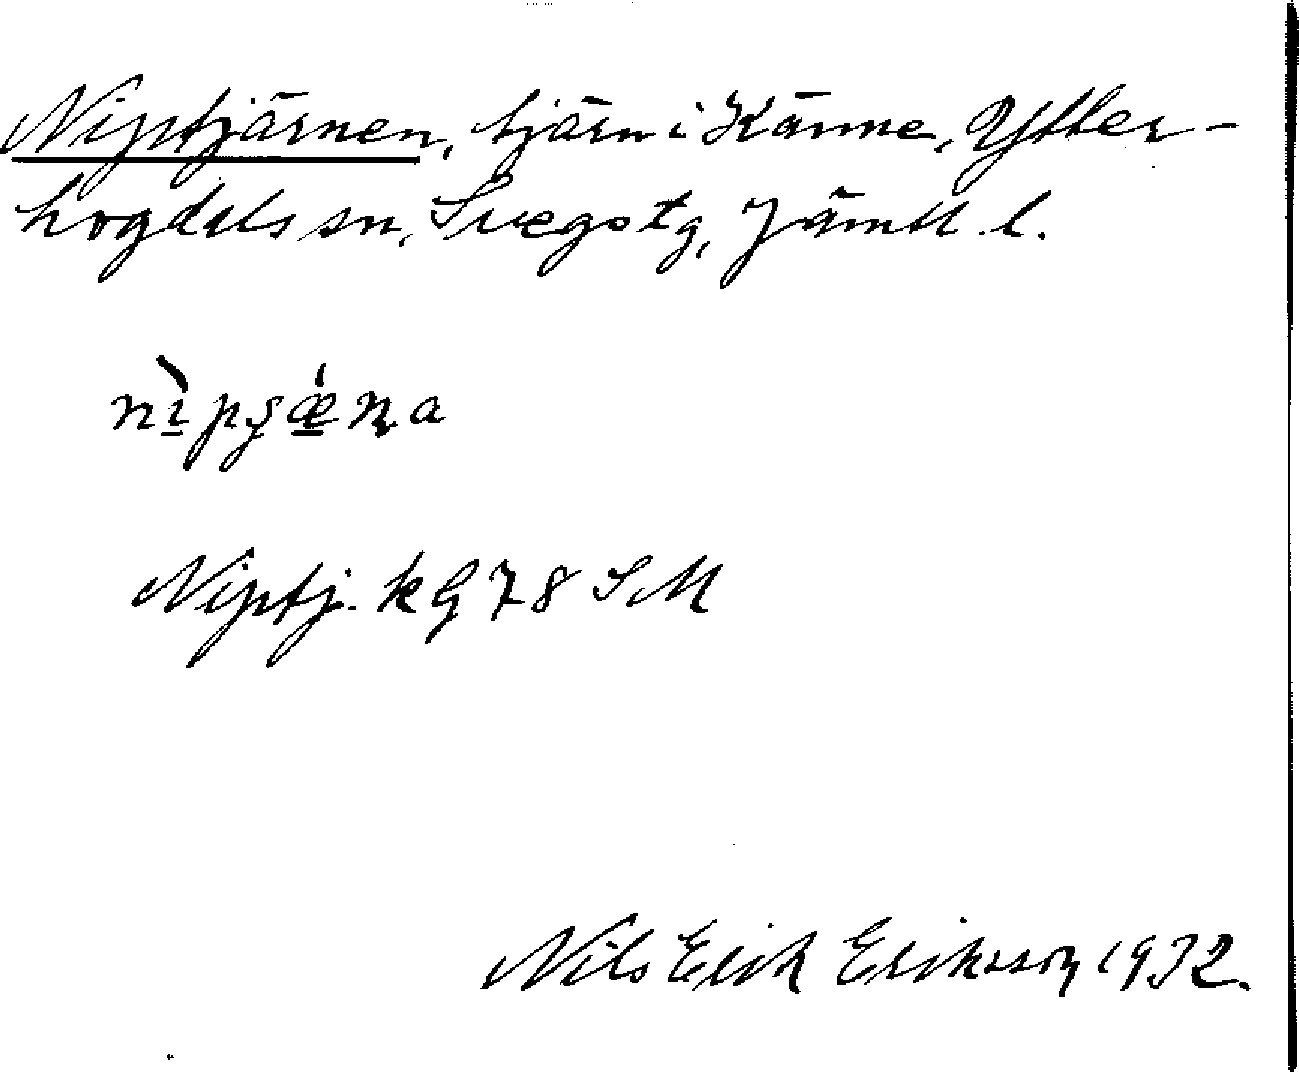 Niptjärnen, tjärn i Känne, Ytter-
hogdals sn, Svegs tg, Jämtl. l.
nìpʂǽɳa
Niptj. kG 78 SM
Nils Erik Eriksson 1932.